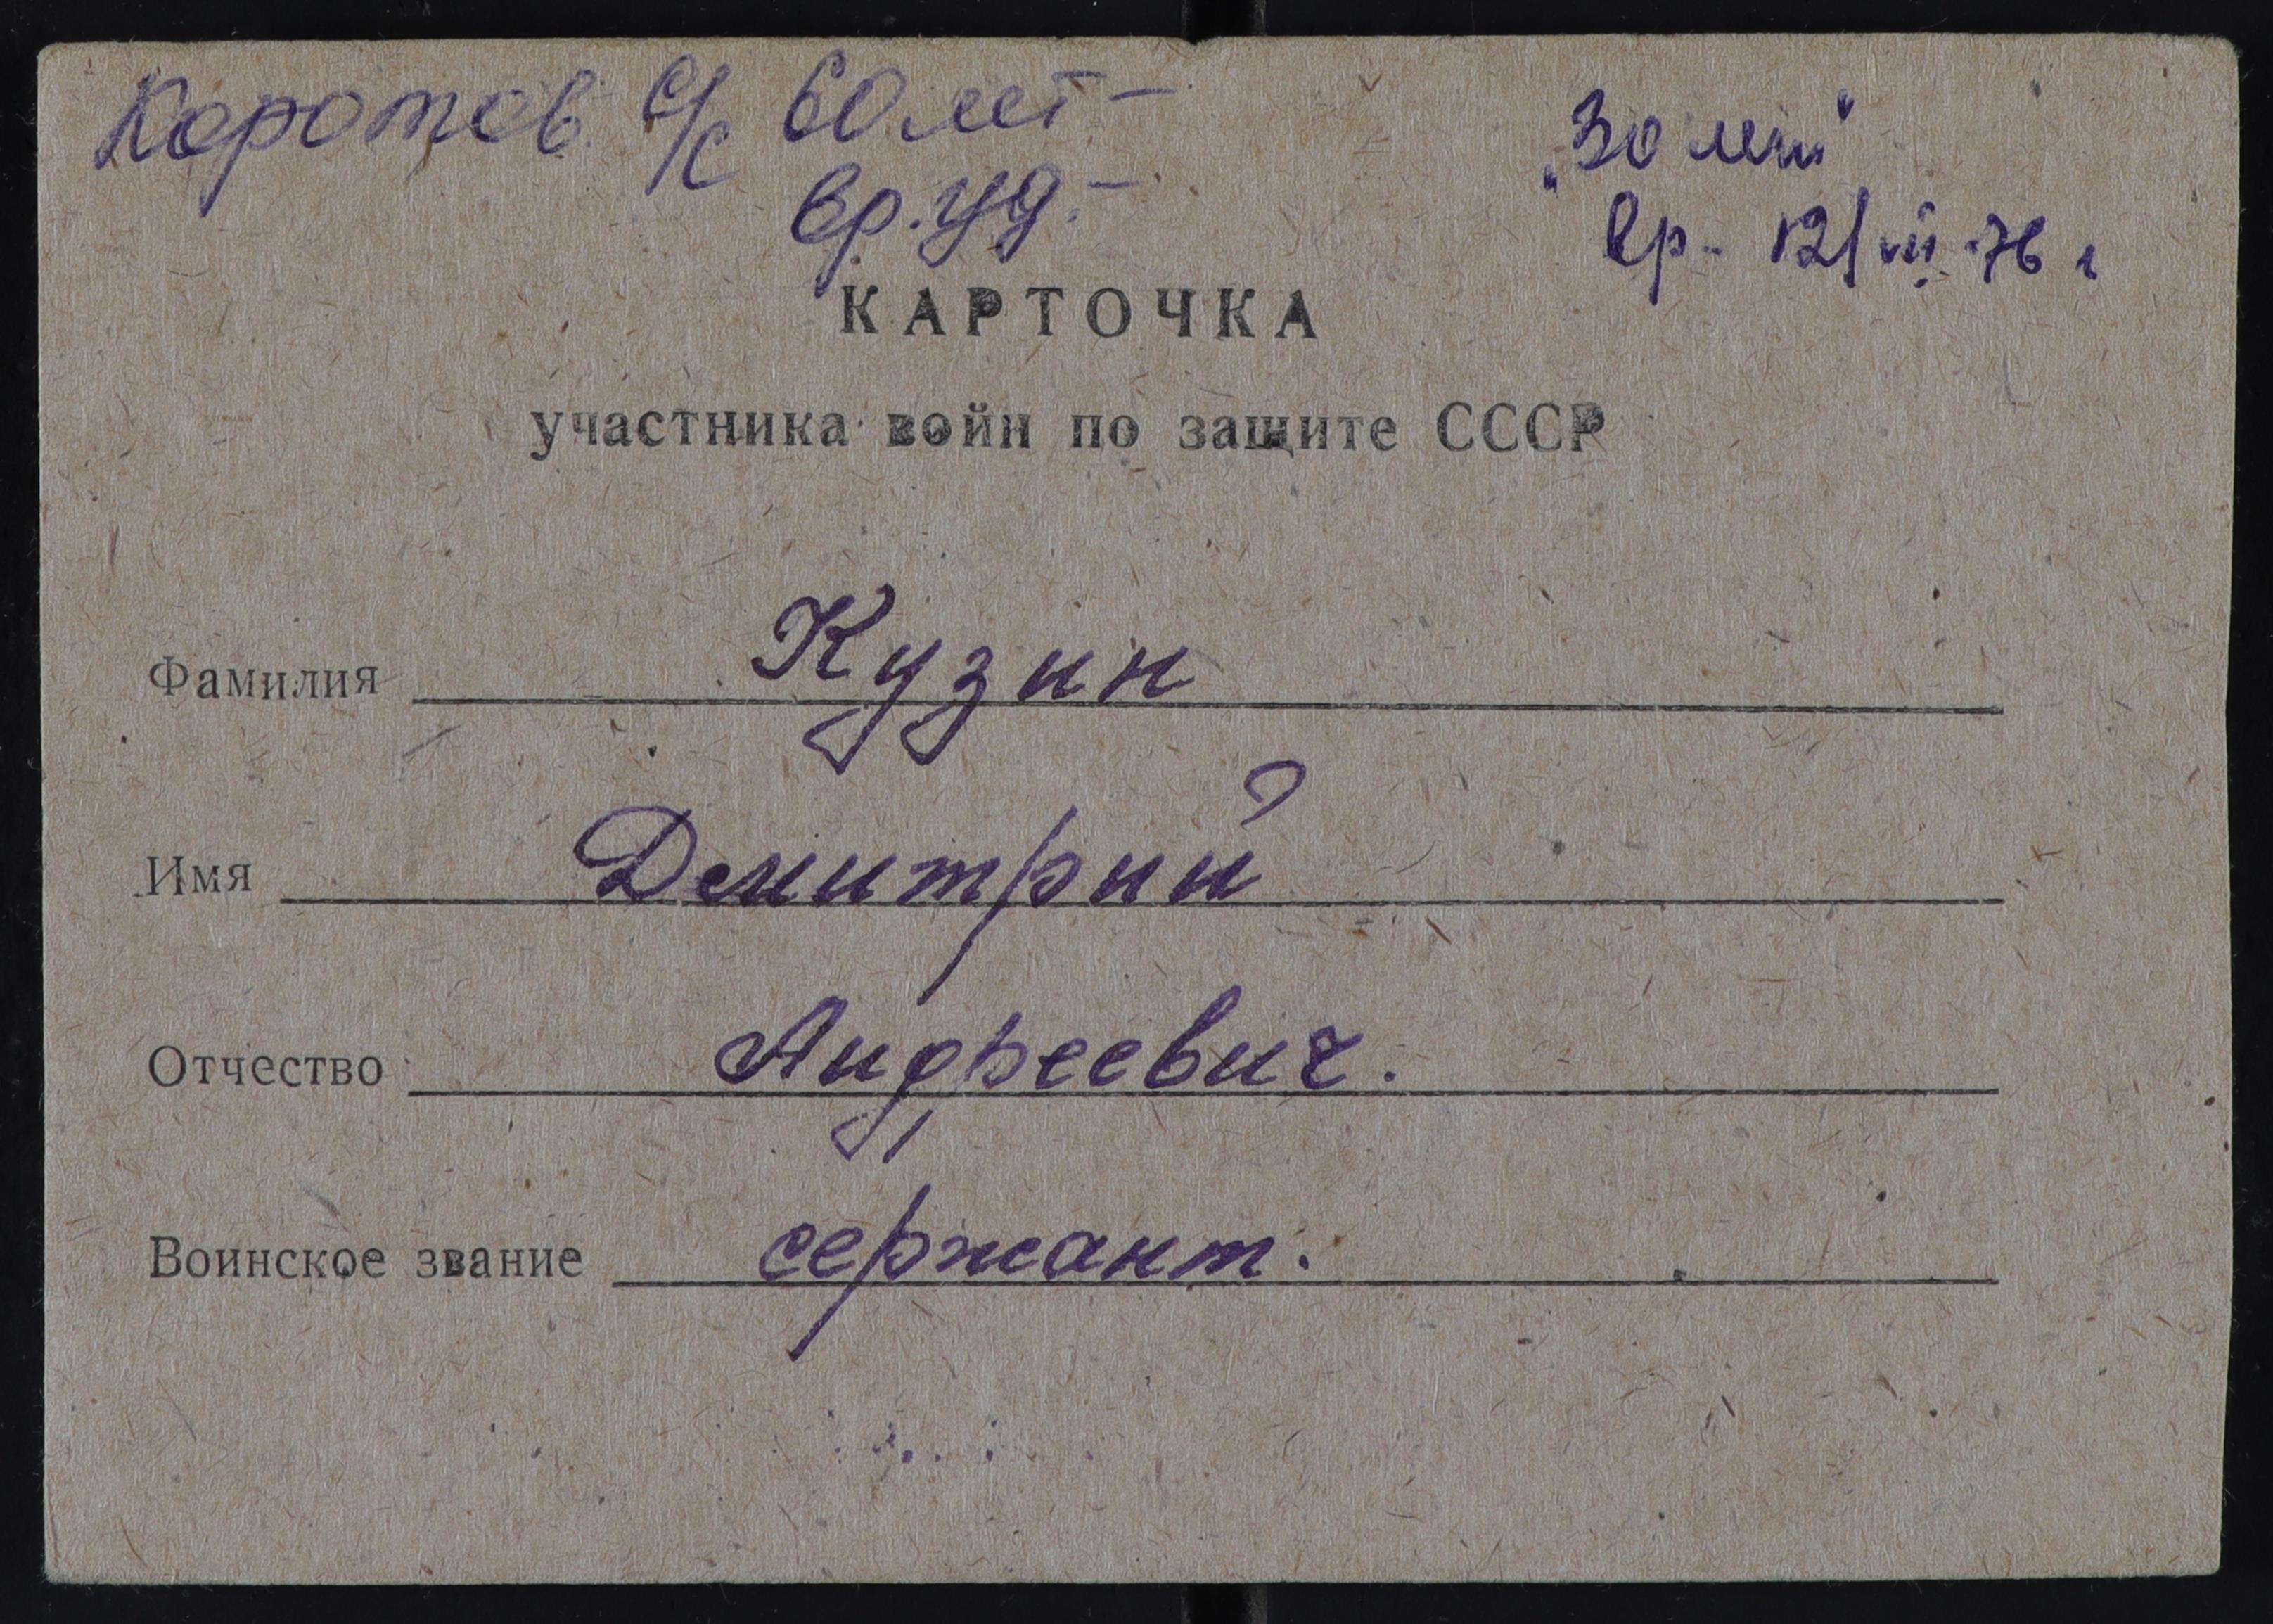 Коротов. с/с 60 лет –
вр. уд. –
"30 лет"
вр - 12/VII-76 г
КАРТОЧКА
участника войн по защите СССР
Фамилия Кузин
Имя Демитрий
Отчество Андреевич.
Воинское звание сержант.